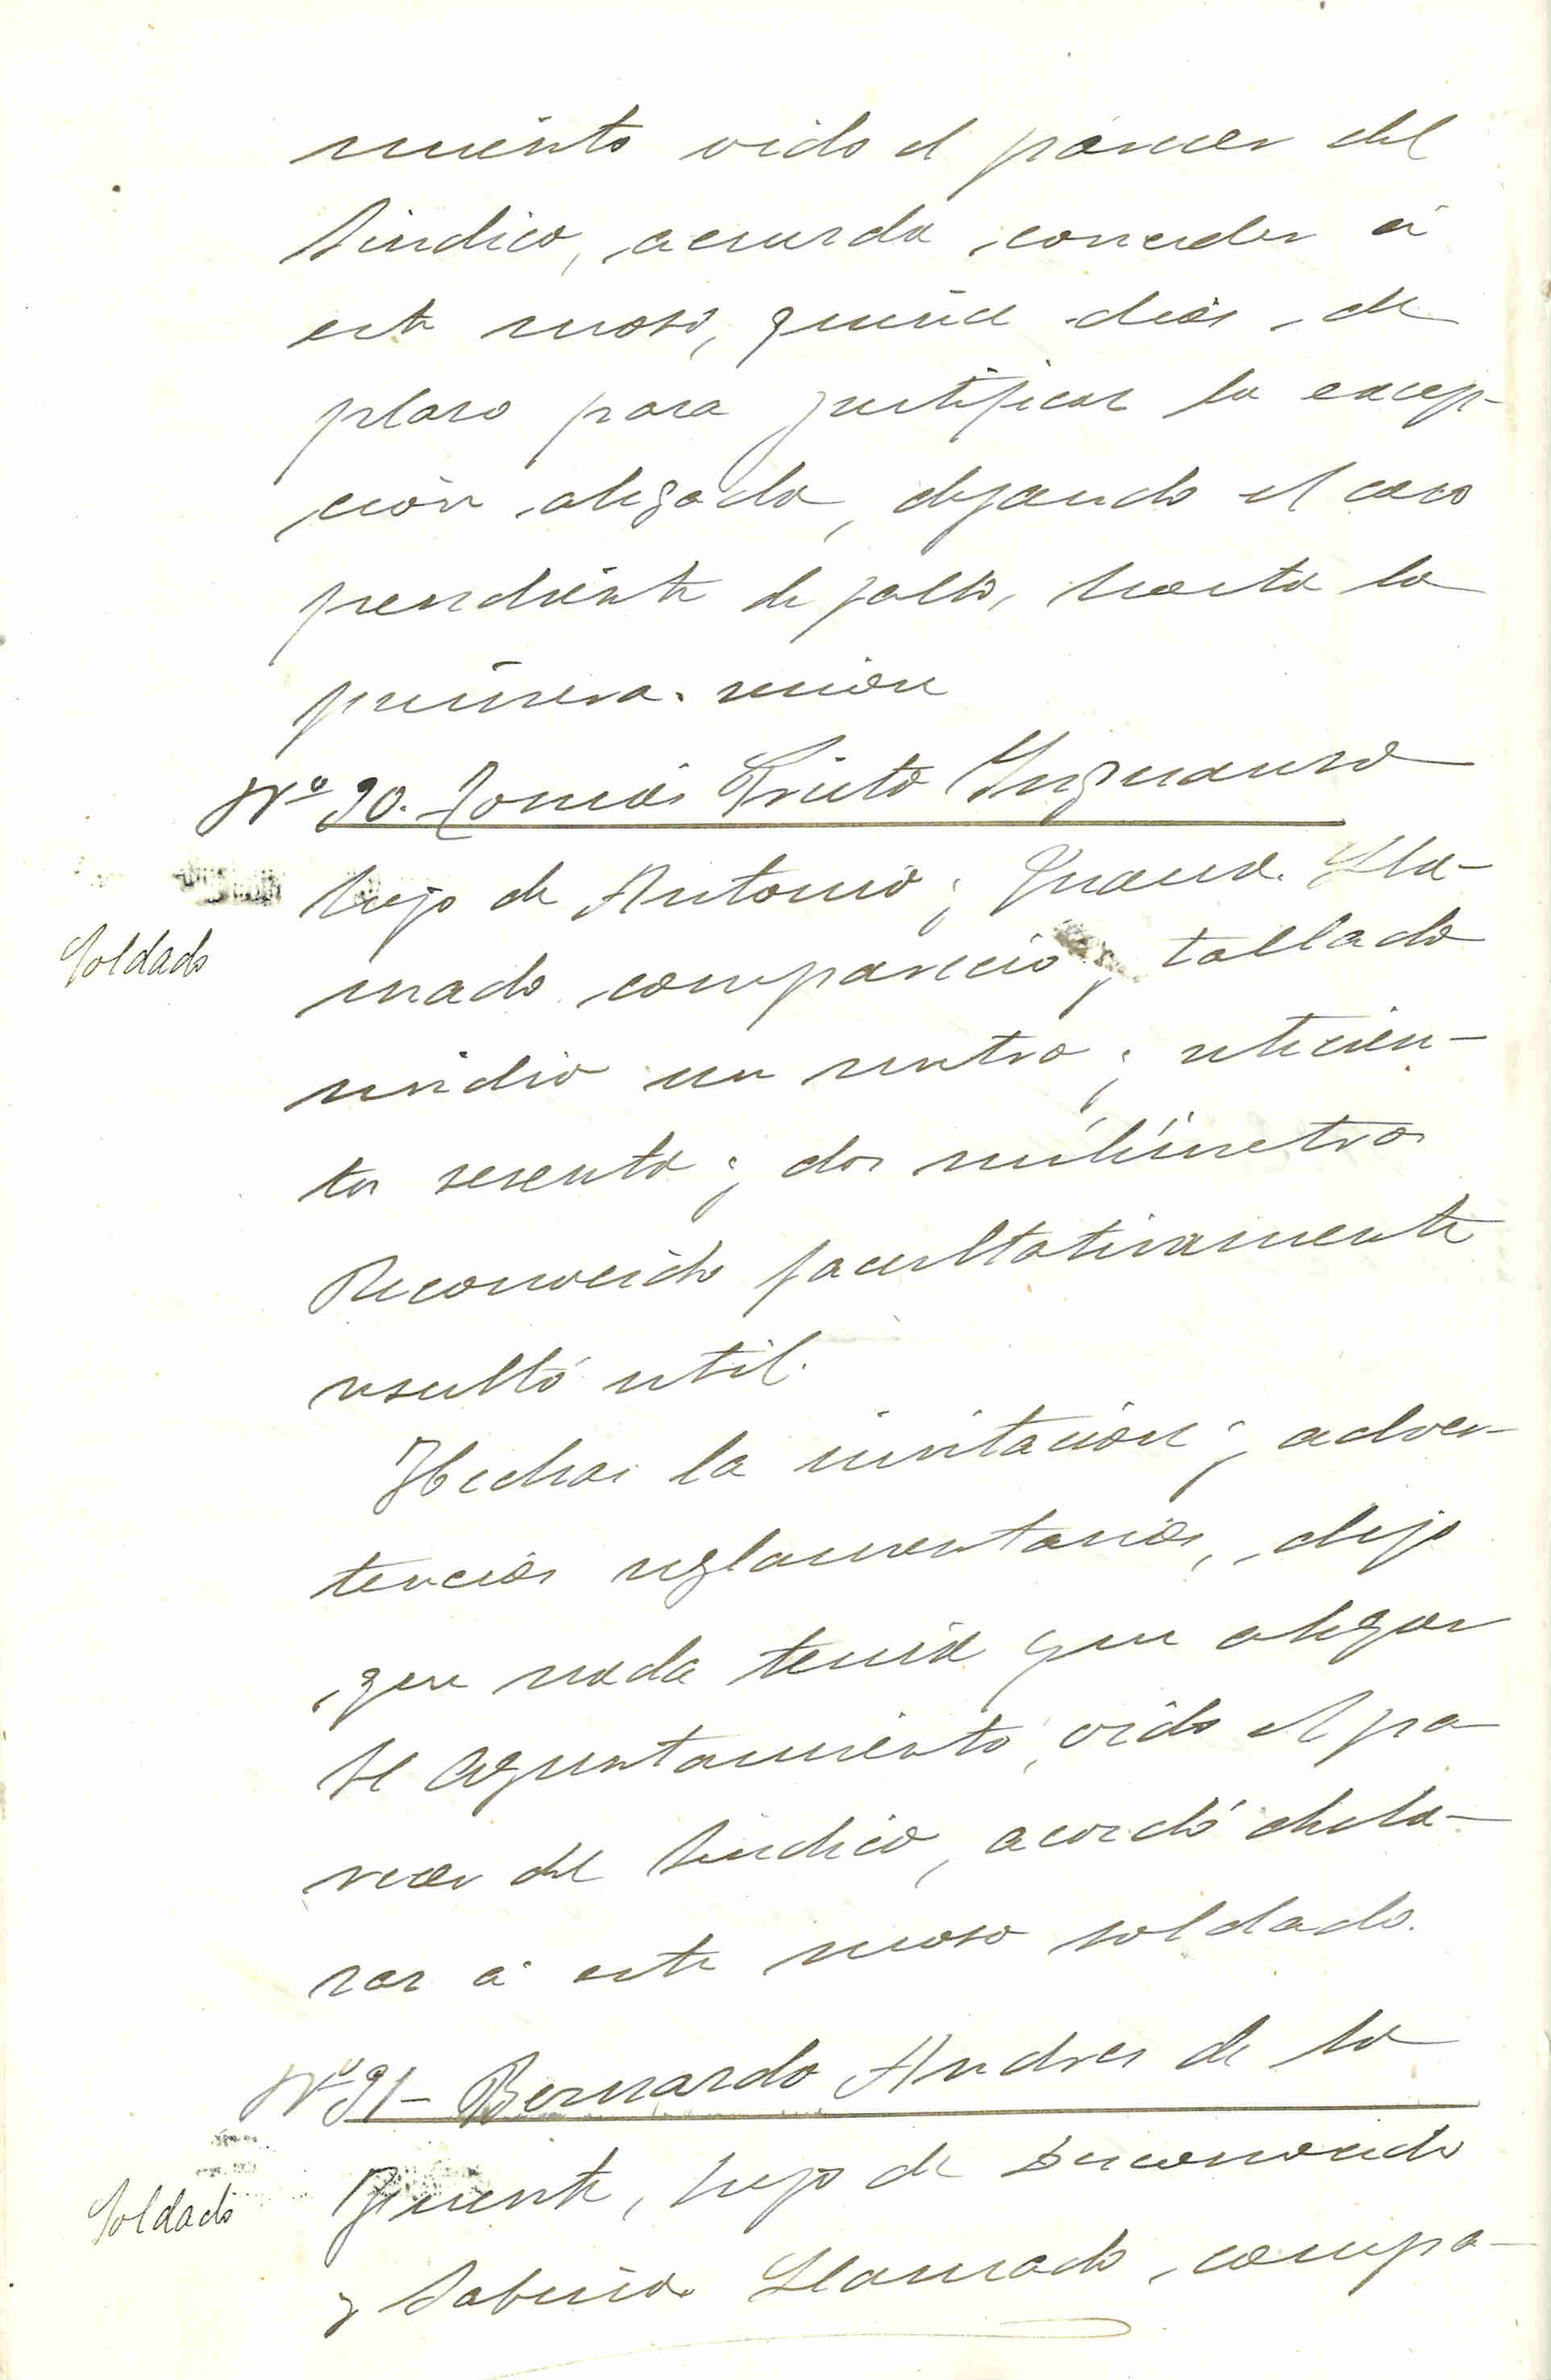 miento oido el parecer del
Sindico, acuerda conceder á
este mozo, quince dias de
plazo para justificar la excep-
ción alegada, dejando el caso
pendiente de fallo, hasta la
primera sesión
Nº 90. Tomás Prieto Inguanzo
hijo de Antonio y Juana. Lla-
Soldado
mado compareció y tallado
midio un metro y setecien-
tos sesenta y dos milímetros
Reconocido facultativamente
resultó util.
Hechas la invitación y adver-
tencias reglamentarias, dijo
que nada tenia que alegar
El Ayuntamiento, oido el pa-
recer del Sindico, acordó decla-
rar á este mozo soldado.
Nº 91- Bernardo Andres de la
Puente, hijo de Desconocido
Soldado
y Sabina. Llamado, compa-